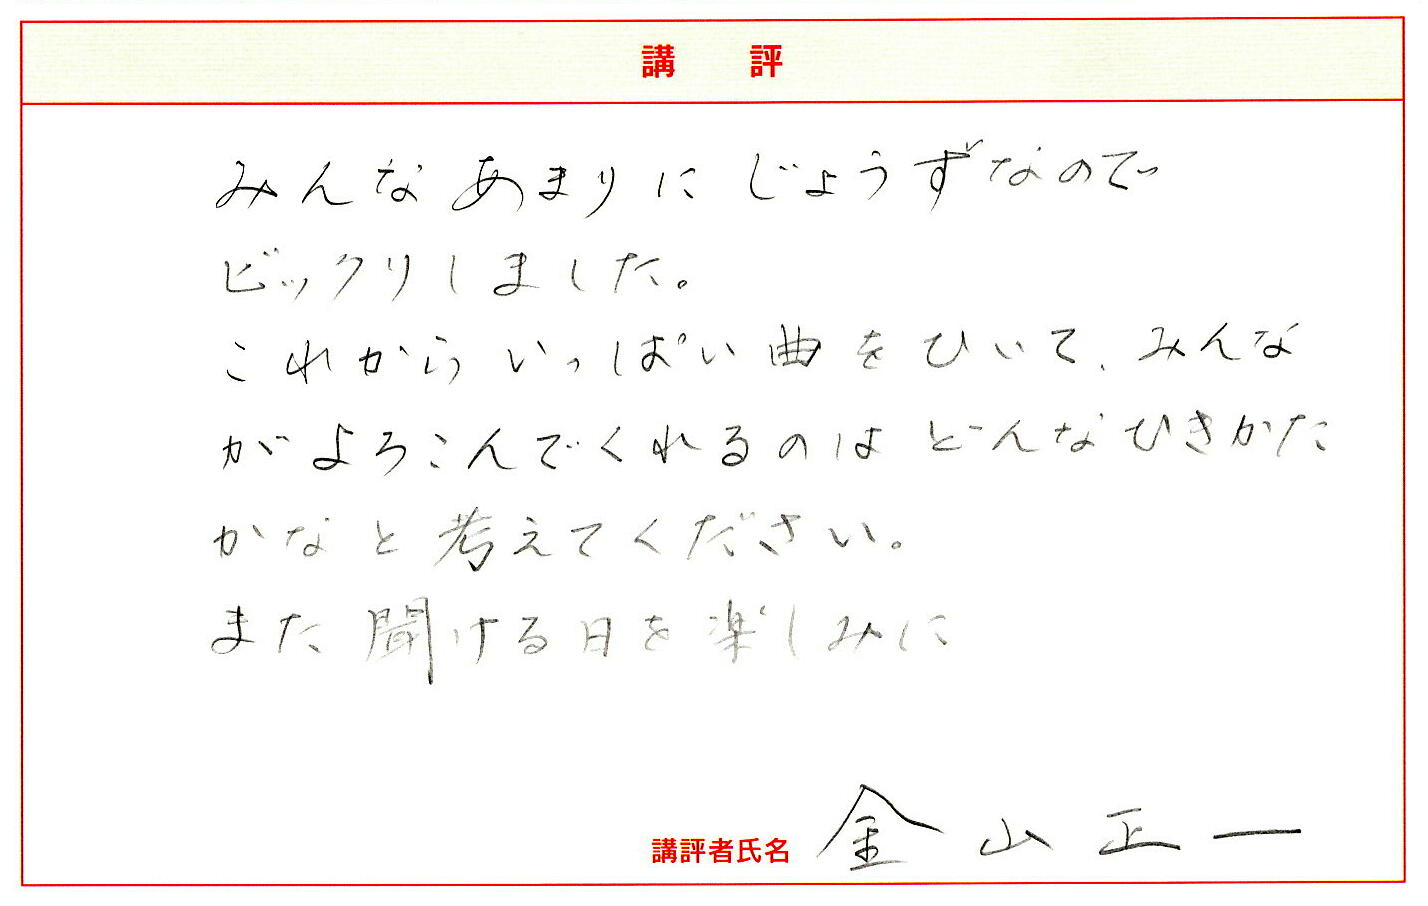 講 評
みんなあまりにじょうずなので
ビックリしました。
これからいっぱい曲をひいて、みんな
がよろこんでくれるのはどんなひきかた
かなと考えてください。
また聞ける日を楽しみに
講評者氏名 金山正一